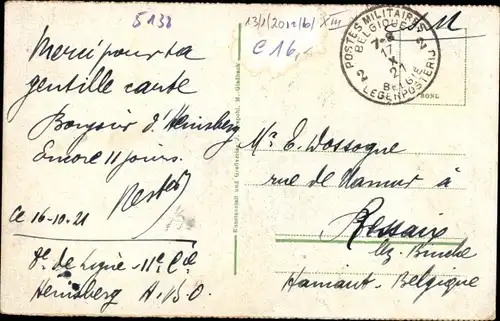 5138
13/1/2012/b/ XIII
C 16,-
POSTES MILITAIRES
BELGIQUE
17
X
2
BELGIE
LEGERPOSTERIJ
2 2
Merci pour ta
gentille carte
Bonjour d'Heinsberg
Encore 11 jours.
Ce 16-10-21
de Ligne - 11e Cie
Heinsberg A.B.O
Kunstanstalt und M.-Gladbach
Mr E. Dossogne
rue de Namur à
Ressaix
lez-Binche
Hainaut - Belgique